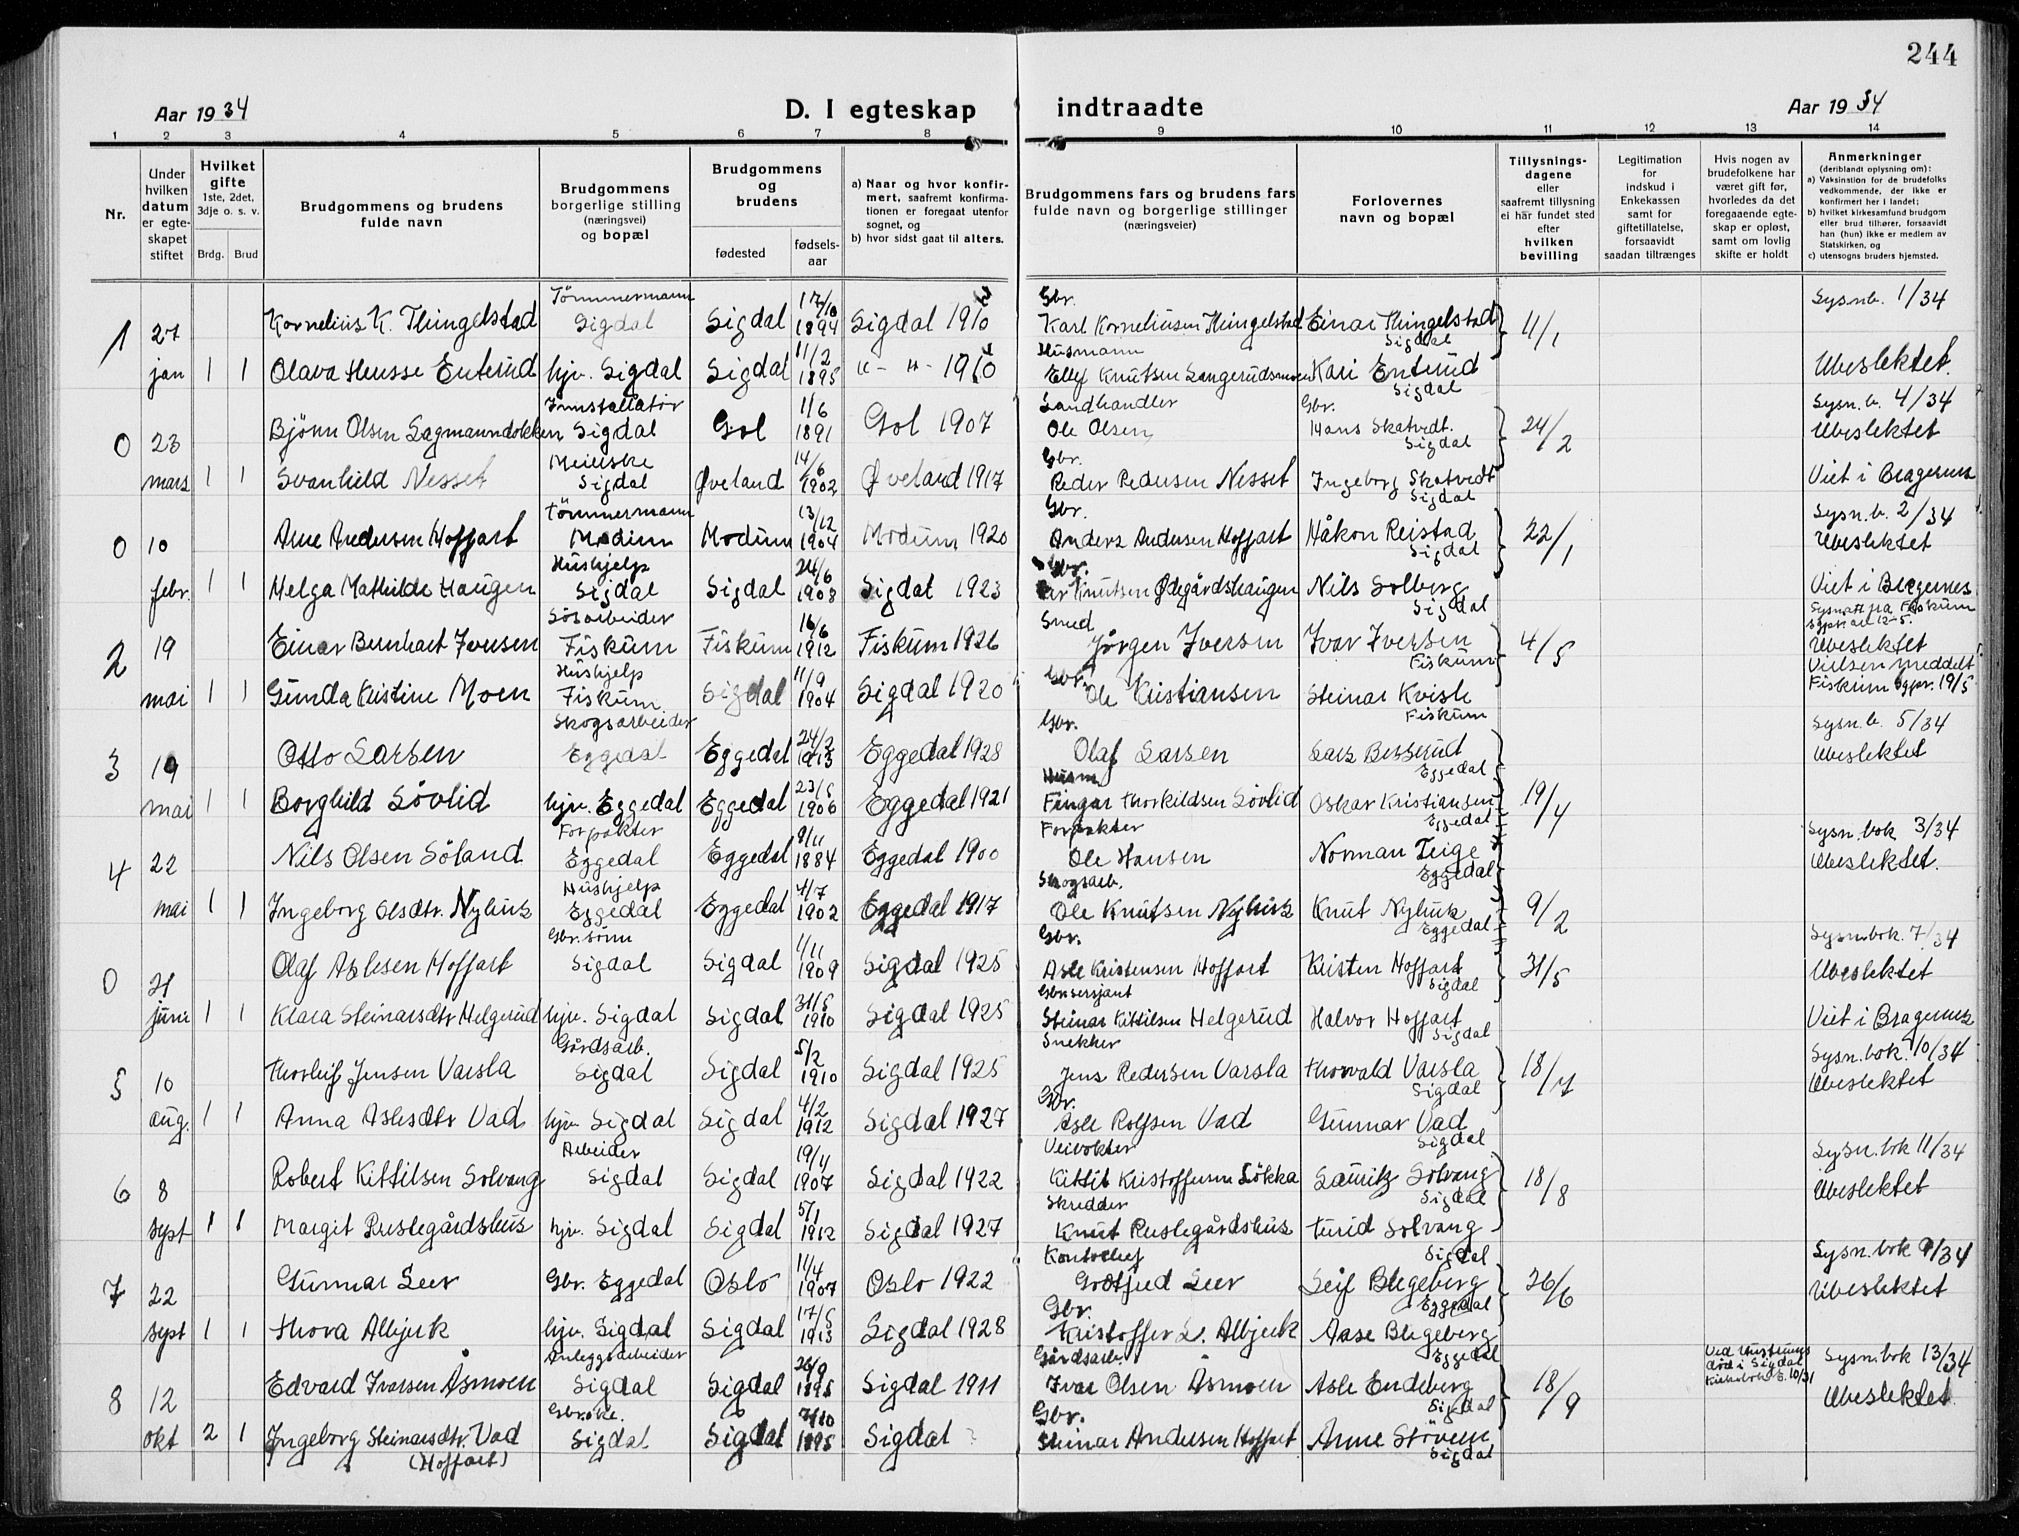 244
Aar 1934 D. I egteskap indtraadte Aar 1934
1 2 3 4 5 6 7 8 9 10 11 12 13 14
Nr.
Under hvilken datum er egteskapet stiftet
Hvilket gifte 1ste, 2det, 3dje o. s. v.
Brdg. Brud
Brudgommens og brudens fulde navn
Brudgommens borgerlige stilling (næringsvei) og bopæl
Brudgommens og brudens
fødested fødselsaar
a) Naar og hvor konfirmert, saafremt konfirmationen er foregaat utenfor sognet, og
b) hvor sidst gaat til alters.
Brudgommens fars og brudens fars fulde navn og borgerlige stillinger (næringsveier)
Forlovernes navn og bopæl
Tillysningsdagene eller saafremt tillysning ei har fundet sted efter hvilken bevilling
Legitimation for indskud i Enkekassen samt for giftetillatelse, forsaavidt saadan tiltrænges
Hvis nogen av brudefolkene har været gift før, hvorledes da det foregaaende egteskap er opløst, samt om lovlig skifte er holdt
Anmerkninger (deriblandt oplysning om):
a) Vaksination for de brudefolks vedkommende, der ikke er konfirmert her i landet;
b) hvilket kirkesamfund brudgom eller brud tilhører, forsaavidt han (hun) ikke er medlem av Statskirken, og
c) utensogns bruders hjemsted.
Tømmermann 17/10 Gbr. Sysnb. 1/34
1 27 Kornelius K. Thingelstad Sigdal Sigdal 1894 Sigdal 1910 Karl Korneliusen Thingelstad Einar Thingelstad Sigdal 11/1
11/2 Husmann
jan 1 1 Olava Hensse Enterud hjv. Sigdal Sigdal 1895 " - " - 1910 Ellef Knutsen Langerudsmoen Kari Enterud Sigdal Ubeslektet.
Innstallatør 1/6 Landhandler Gbr. Sysn.b. 4/34
0 23 Bjönn Olsen Sagmanndokken Sigdal Gol 1891 Gol 1907 Ole Olsen Hans Skatvedt. Sigdal 24/2 Ubeslektet
Meierske 14/6 Gbr.
mars 1 1 Svanhild Nesset Sigdal Øveland 1902 Øveland 1917 Peder Pedersen Nesset Ingeborg Skatvedt Sigdal Viet i Bragernes
Tømmermann 13/12 Gbr. Sysn.b. 2/34
0 10 Arne Andersen Hoffart Modum Modum 1904 Modum 1920 Anders Andersen Hoffart Håkon Reistad Sigdal 22/1 Ubeslektet
Hushjelp 24/6 Gbr.
febr. 1 1 Helga Mathilde Haugen Sigdal Sigdal 1908 Sigdal 1923 Knutsen Ødegårdshaugen Nils Solberg Sigdal Viet i Bragernes
16/6 Smed Sysnatt fra Fiskum sgpr. av 12-5.
2 19 Einar Bernhart Iversen Fiskum Fiskum 1912 Fiskum 1926 Jørgen Iversen Ivar Iversen Fiskum 4/5 Ubeslektet
Hushjelp 11/9 Gbr. Vielsen meddelt
mai 1 1 Gunda Kristine Moen Fiskum Sigdal 1904 Sigdal 1920 Ole Kristiansen Steinar Kvisle Fiskum Fiskum sgpr. 19/5
Skogsarbeider 24/2 Gbr. Sysn.b. 5/34
3 19 Otto Larsen Eggedal Eggedal 1913 Eggedal 1928 Olaf Larsen Lars Besserud Eggedal Ubeslektet
23/5 Husm
mai 1 1 Borghild Søvlid hjv. Eggedal Eggedal 1906 Eggedal 1921 Fingar Thorkildsen Søvlid Oskar Kristiansen Eggedal 19/4
Forpakter 9/11 Forpakter Sysn.bok 3/34
4 22 Nils Olsen Söland Eggedal Eggedal 1884 Eggedal 1900 Ole Hansen Norman Teige Eggedal Ubeslektet.
Hushjelp 4/7 Skogsarb.
mai 1 1 Ingeborg Olsdtr. Nyhus Eggedal Eggedal 1902 Eggedal 1917 Ole Knutsen Nyhus Knut Nyhus Eggedal 9/2
Gbr. sönn 1/11 Gbr. Sysn.bok. 7/34
0 21 Olaf Aslesen Hoffart Sigdal Sigdal 1909 Sigdal 1925 Asle Kristensen Hoffart Kristen Hoffart Sigdal 31/5 Ubeslektet
31/5 Gbr. sersjant
juni 1 1 Klara Steinarsdtr Helgerud hjv. Sigdal Sigdal 1910 Sigdal 1925 Steinar Kittilsen Helgerud Halvor Hoffart Sigdal Viet i Bragernes
Gårdsarb. 5/2 Snekker Sysn.bok. 10/34
5 10 Thorleif Jensen Varsla Sigdal Sigdal 1910 Sigdal 1925 Jens Pedersen Varsla Thorvald Varsla Sigdal 18/7 Ubeslektet
4/2 Gbr.
aug. 1 1 Anna Aslesdtr Vad hjv. Sigdal Sigdal 1912 Sigdal 1927 Asle Rolfsen Vad Gunnar Vad Sigdal
Arbeider 19/4 Veivokter Sysn.bok 11/34
6 8 Robert Kittilsen Solvang Sigdal Sigdal 1907 Sigdal 1922 Kittil Kristoffersen Løkka Lauritz Solvang Sigdal 18/8 Ubeslektet
5/1 Skredder
sept 1 1 Margit Ruslegårdshus hjv. Sigdal Sigdal 1912 Sigdal 1927 Knut Ruslegårdshus Turid Solvang Sigdal
11/4 Kontorchef Sysn.bok 9/34
7 22 Gunnar Seer Gbr. Eggedal Oslo 1907 Oslo 1922 Gotfred Seer Leif Blegeberg Eggedal 26/6 Ubeslektet
17/5 Gbr.
sept 1 1 Thora Albjerk hjv. Sigdal Sigdal 1913 Sigdal 1928 Kristoffer L. Albjerk Aase Blegeberg Eggedal
Anleggsarbeider 26/9 Gårdsarb. Ved hustruens död i Sigdal Kirkebok S. 10/31 Sysn.bok 13/34
8 12 Edvard Ivarsen Åsmoen Sigdal Sigdal 1895 Sigdal 1911 Ivar Olsen Åsmoen Asle Endeberg Sigdal 18/9 Ubeslektet
7/10 Gbr.
okt 2 1 Ingeborg Steinarsdtr. Vad (Hoffart) Sigdal Sigdal 1895 Sigdal ? Steinar Andersen Hoffart Anne Støvern Sigdal